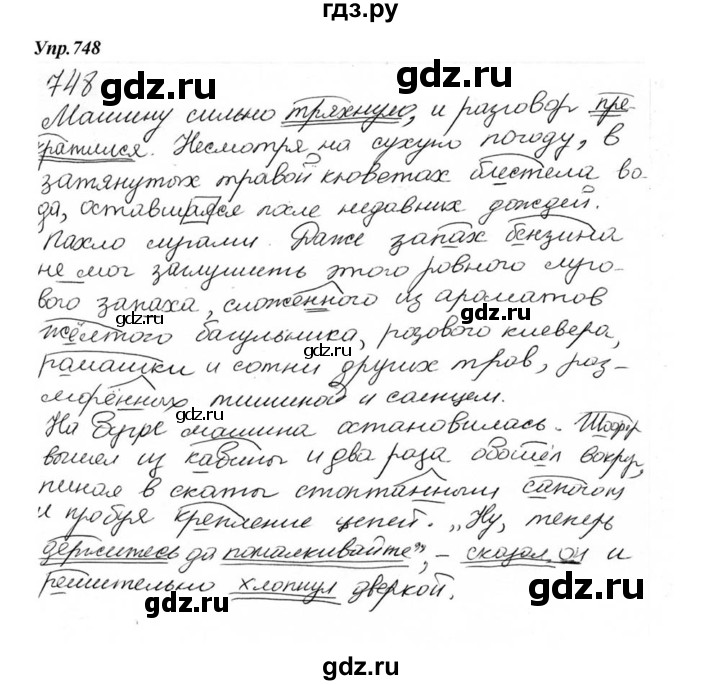 гдз.ру
Упр.748
748
gdz.ru
gdz.ru
Машину сильно тряхнуло, и разговор пре-
кратился. Несмотря на сухую погоду, в
затянутых травой кюветах блестела во-
да, оставшаяся после недавних дождей.
Пахло лугами. Даже запах бензина
не мог заглушить этого ровного луго-
вого запаха, сложенного из ароматов
gdz.ru
gdz.ru
жёлтого багульника, розового клевера,
ромашки и сотни других трав, раз-
морённых тишиной и солнцем.
gdz.ru
На бугре машина остановилась. Шофёр
вышел из кабины и два раза обошёл вокруг,
пиная в скаты стоптанным сапогом
и пробуя крепление цепей. „Ну, теперь
держитесь да помалкивайте", – сказал он и
решительно хлопнул дверкой.
gdz.ru
gdz.ru
gdz.ru